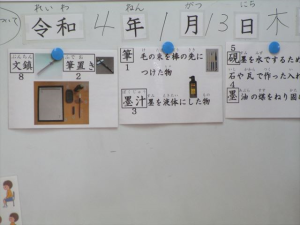 れいわ ねん がつ にち
令和4年1月13日木
ぶんちん ふで お
文鎮 筆置き
8 2
筆 毛の束を棒の先に
1 つけた物
墨汁 墨を液体にした物
3
5
硯 墨を水でするため
石や瓦で作った入れ
4
墨 油の煤をねり固め